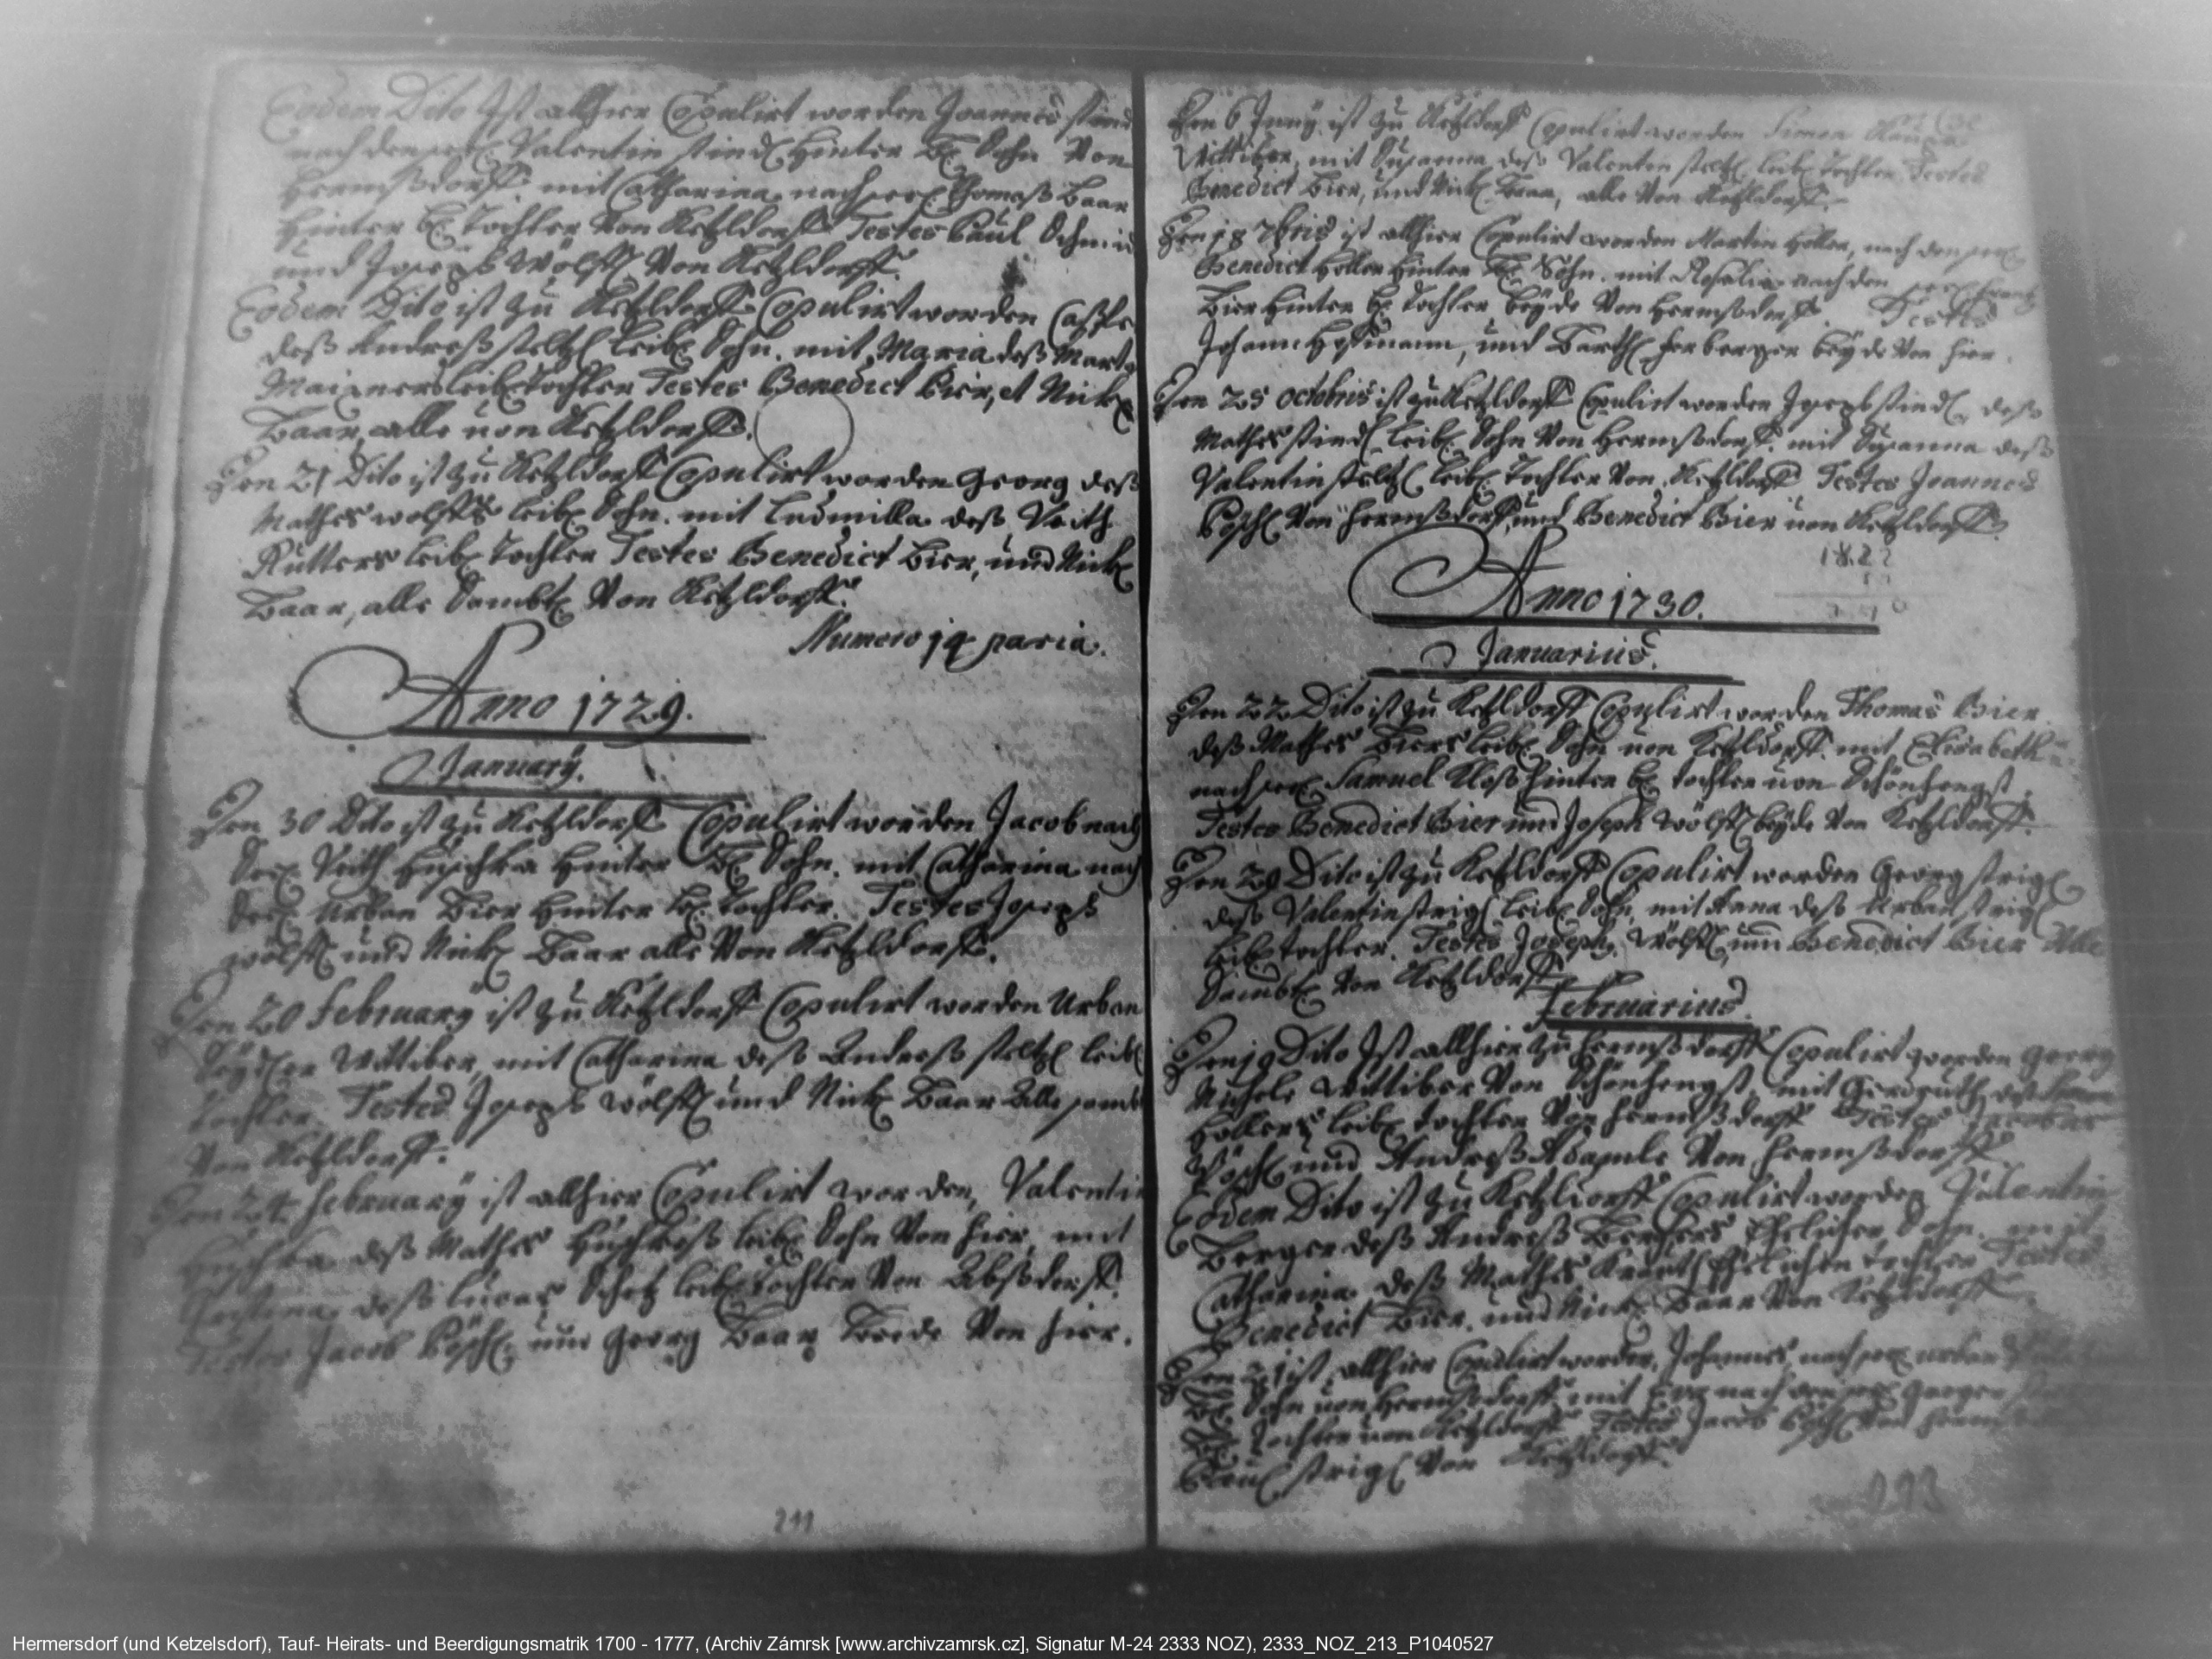 Eodem Dito Ist allhier Copulirt worden Joannes
nach den Valentin Stindl Hinter Sohn Von
Hermßdorff. mit Catharina nach Thomaß Baar
Hinter Tochter Von Ketzldorff Testes Paul Schmid
und Joseph Wölffl Von Ketzldorff.
Eodem Dito ist zu Ketzldorff Copulirt worden
deß Andreß Steltzl leibl Sohn. mit Maria deß
leibl Tochter Testes Benedict Bier, et Nickl
Baar, alle von Ketzldorff.
Den 21 Dito ist zu Ketzldorff Copulirt worden Georg deß
Mathes Wölffls leibl Sohn. mit Ludmilla deß Veith
Rutters leibl Tochter Testes Benedict Bier, und Nickl
Baar, alle Sambtl Von Ketzldorff.
Numero 14 paria.
Anno 1729.
January.
Den 30 Dito ist zu Ketzldorff Copulirt worden Jacob nach
Veith Huschka Hinter Sohn. mit Catharina nach
Urban Bier Hinter Tochter. Testes Joseph
Wölffl und Nickl Baar alle Von Ketzldorff.
Den 20 February ist zu Ketzldorff Copulirt worden Urban
Wittiber, mit Catharina deß Andreß Steltzl leibl
Tochter. Testes Joseph Wölffl und Nickl Baar Alle
Von Ketzldorff.
Den 24 February ist allhier Copulirt worden, Valentin
Huschka deß Mathes leibl Sohn Von hier, mit
deß Lucas leibl Tochter Von Abßdorff.
Testes Jacob Pöschl, und Georg Baar Beede Von hier.
211
Den 6 Juny ist zu Ketzldorff Copulirt worden Simon
Wittiber, mit Susanna deß Valentin Steltzl leibl Tochter Testes
Benedict Bier, und Nickl Baar, alle Von Ketzldorff.
Den 18 7bris ist allhier Copulirt worden Martin Holler, nach den
Benedict Holler Hinter Sohn. mit Rosalia nach den
Bier Hinter Tochter beyde Von Hermßdorff. Testes
Johann Hoffmann, und Barthl Herberger beyde Von hier.
Den 25 octobris ist zu Ketzldorff Copulirt worden Joseph Stindl, deß
Mathes Stindl leibl Sohn Von Hermßdorff. mit Susanna deß
Valentin Steltzl leibl Tochter Von Ketzldorff Testes Joannes
Pöschl Von Hermßdorff, und Benedict Bier von Ketzldorff.
Anno 1730.
Januarius.
Den 22 Dito ist zu Ketzldorff Copulirt worden Thomas Bier
deß Mathes Biers leibl Sohn von Ketzldorff. mit Elisabeth
nach Samuel Kloß hinter Tochter von Schönhengst.
Testes Benedict Bier und Joseph Wölffl beyde Von Ketzldorff.
Den 29 Dito ist zu Ketzldorff Copulirt worden Georg Strigl
deß Valentin Strigl leibl Sohn, mit Anna deß Urban Strigl
leibl Tochter. Testes Joseph Wölffl, und Benedict Bier Alle
Sambtl Von Ketzldorff.
Februarius.
Den 19 Dito Ist allhier zu Hermßdorff Copulirt worden Georg
Wittiber Von Schönhengst, mit Gerdruth
Hollers leibl Tochter Von Hermßdorff Testes Jacobus
Pöschl und Andreß Von Hermßdorff
Eodem Dito ist zu Ketzldorff Copulirt worden Valentin
Berger deß Andreß Berchers Ehelicher Sohn. mit
Catharina. deß Mathes Ehelichen Tochter Testes
Benedict Bier, und Nickl Baar Von Ketzldorff.
Den 21 ist allhier Copulirt worden, Johannes nach Urban
Sohn von Hermßdorff. mit nach den Georgen
Tochter von Ketzldorff Testes Jacob Pöschl Von
Strigl Von Ketzldorff.
213
Hermersdorf (und Ketzelsdorf), Tauf- Heirats- und Beerdigungsmatrik 1700 - 1777, (Archiv Zámrsk [www.archivzamrsk.cz], Signatur M-24 2333 NOZ), 2333_NOZ_213_P1040527